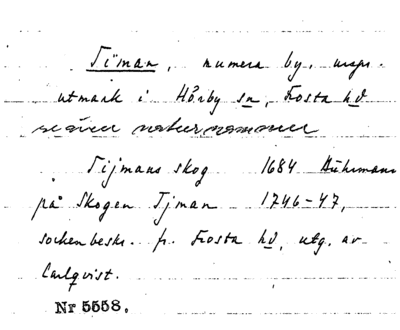 Timan, numera by, urspr.
utmark i Hörby sn, Frosta hd
se även naturnamnen
Tijmans skog 1684 Buhrmans
på Skogen Tjman 1746-47,
sockenbeskr. fr. Frosta hd, utg. av
Carlqvist.
Nr 5558.